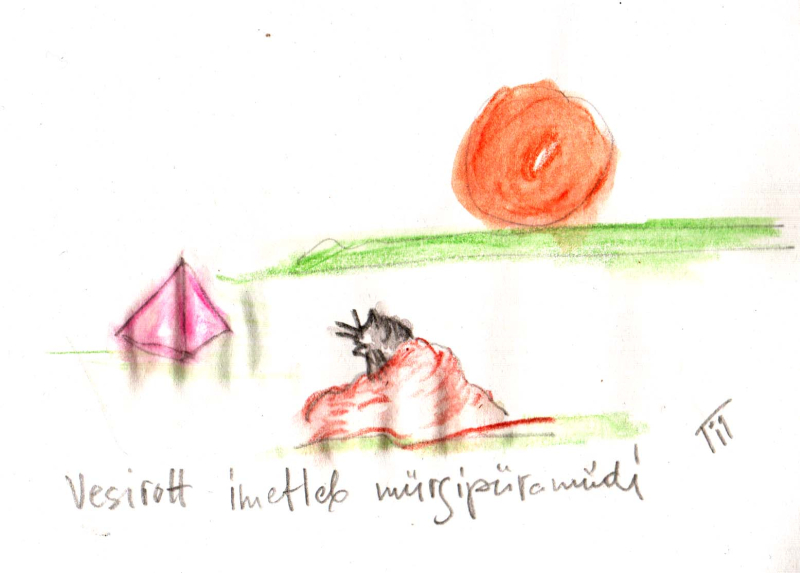 Tiit
Vesirott imetleb mürgipüramiidi